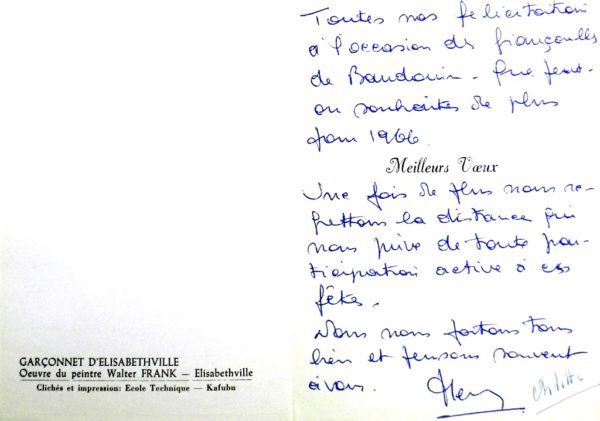 GARÇONNET D'ELISABETHVILLE
Oeuvre du peintre Walter FRANK — Elisabethville
Clichés et impression: Ecole Technique — Kafubu
Toutes nos félicitation
à l'occasion des fiançailles
de Baudouin - Que peut-
on souhaiter de plus
pour 1966.
Meilleurs Vœux
Une fois de plus nous re-
grettons la distance qui
nous prive de toute par-
ticipation active à ces
fêtes.
Nous nous portons tous
bien et pensons souvent
à vous.